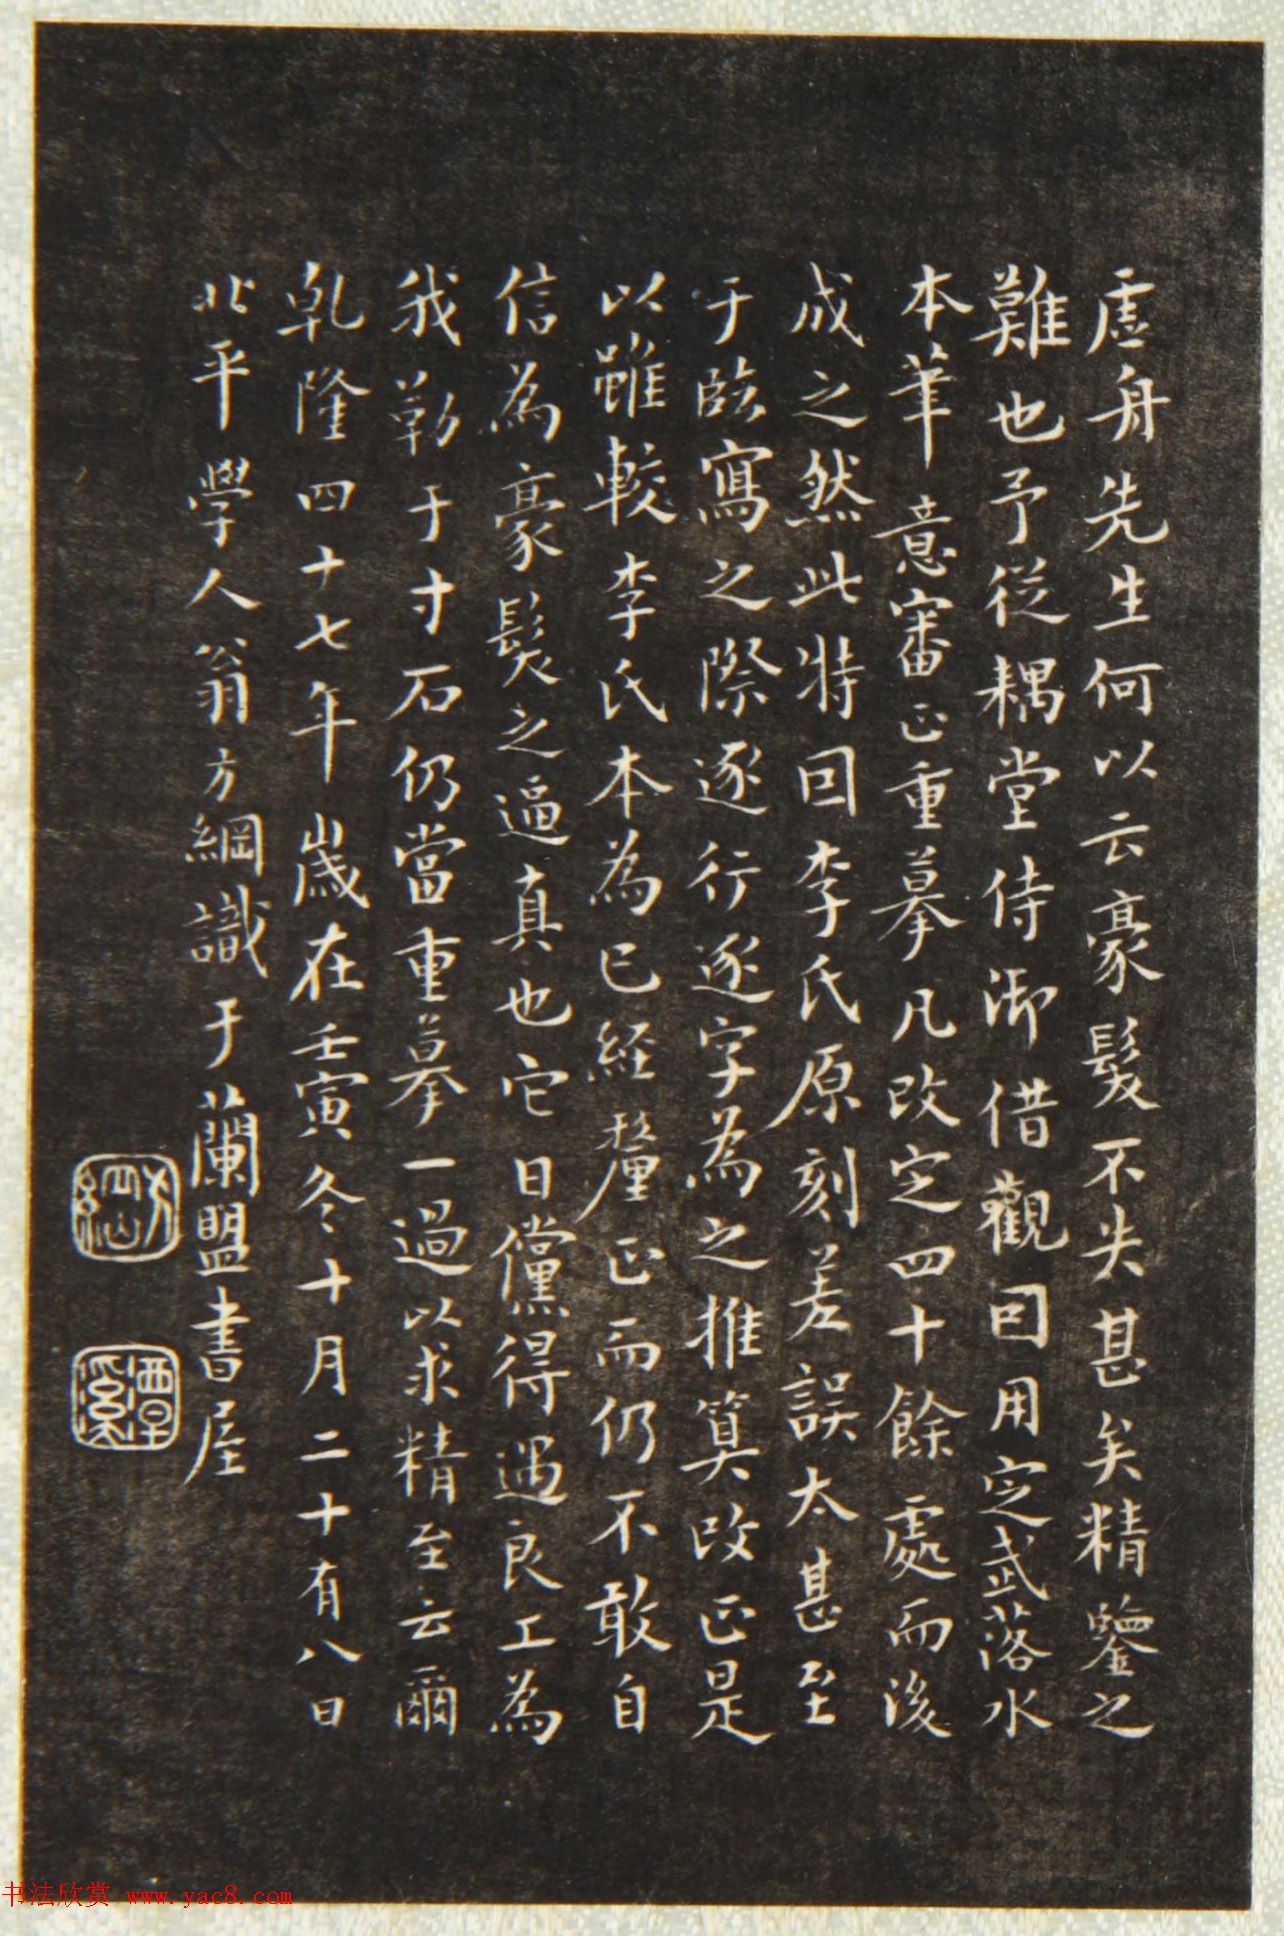 虛舟先生何以云豪髮不失甚矣精鑒之
難也予從耦堂侍御借觀因用定武落水
本筆意審正重摹凡改定四十餘處而後
成之然此特因李氏原刻差誤太甚至
于臨寫之際逐行逐字為之推算改正是
以雖較李氏本為已經釐正而仍不敢自
信為豪髮之逼真也它日儻得遇良工為
我勒于寸石仍當重摹一過以求精至云爾
乾隆四十七年歲在壬寅冬十月二十有八日
北平學人翁方綱識于蘭盟書屋
方綱
覃溪
书法欣赏 www.yac8.com